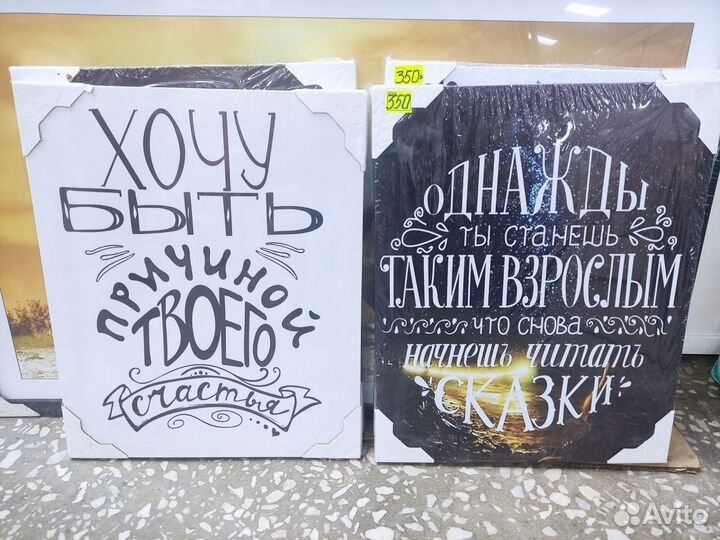 ХОЧУ
БЫТЬ
ПРИЧИНОЙ
ТВОЕГО
счастья
350=
350
ОДНАЖДЫ
ТЫ СТАНЕШЬ
ТАКИМ ВЗРОСЛЫМ
ЧТО СНОВА
НАЧНЕШЬ ЧИТАТЬ
СКАЗКИ
Avito